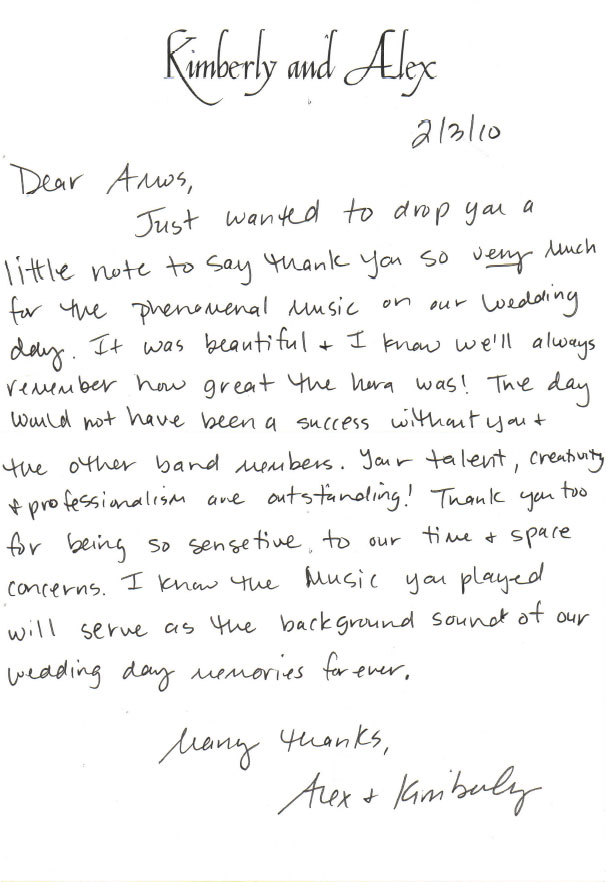 Kimberly and Alex
2/3/10
Dear Amos,
Just wanted to drop you a
little note to say thank you so very much
for the phenomenal music on our wedding
day. It was beautiful + I know we'll always
remember how great the hora was! The day
would not have been a success without you +
the other band members. Your talent, creativity
+ professionalism are outstanding! Thank you too
for being so sensetive to our time + space
concerns. I know the music you played
will serve as the background sound of our
wedding day memories forever.
Many thanks,
Alex + Kimberly